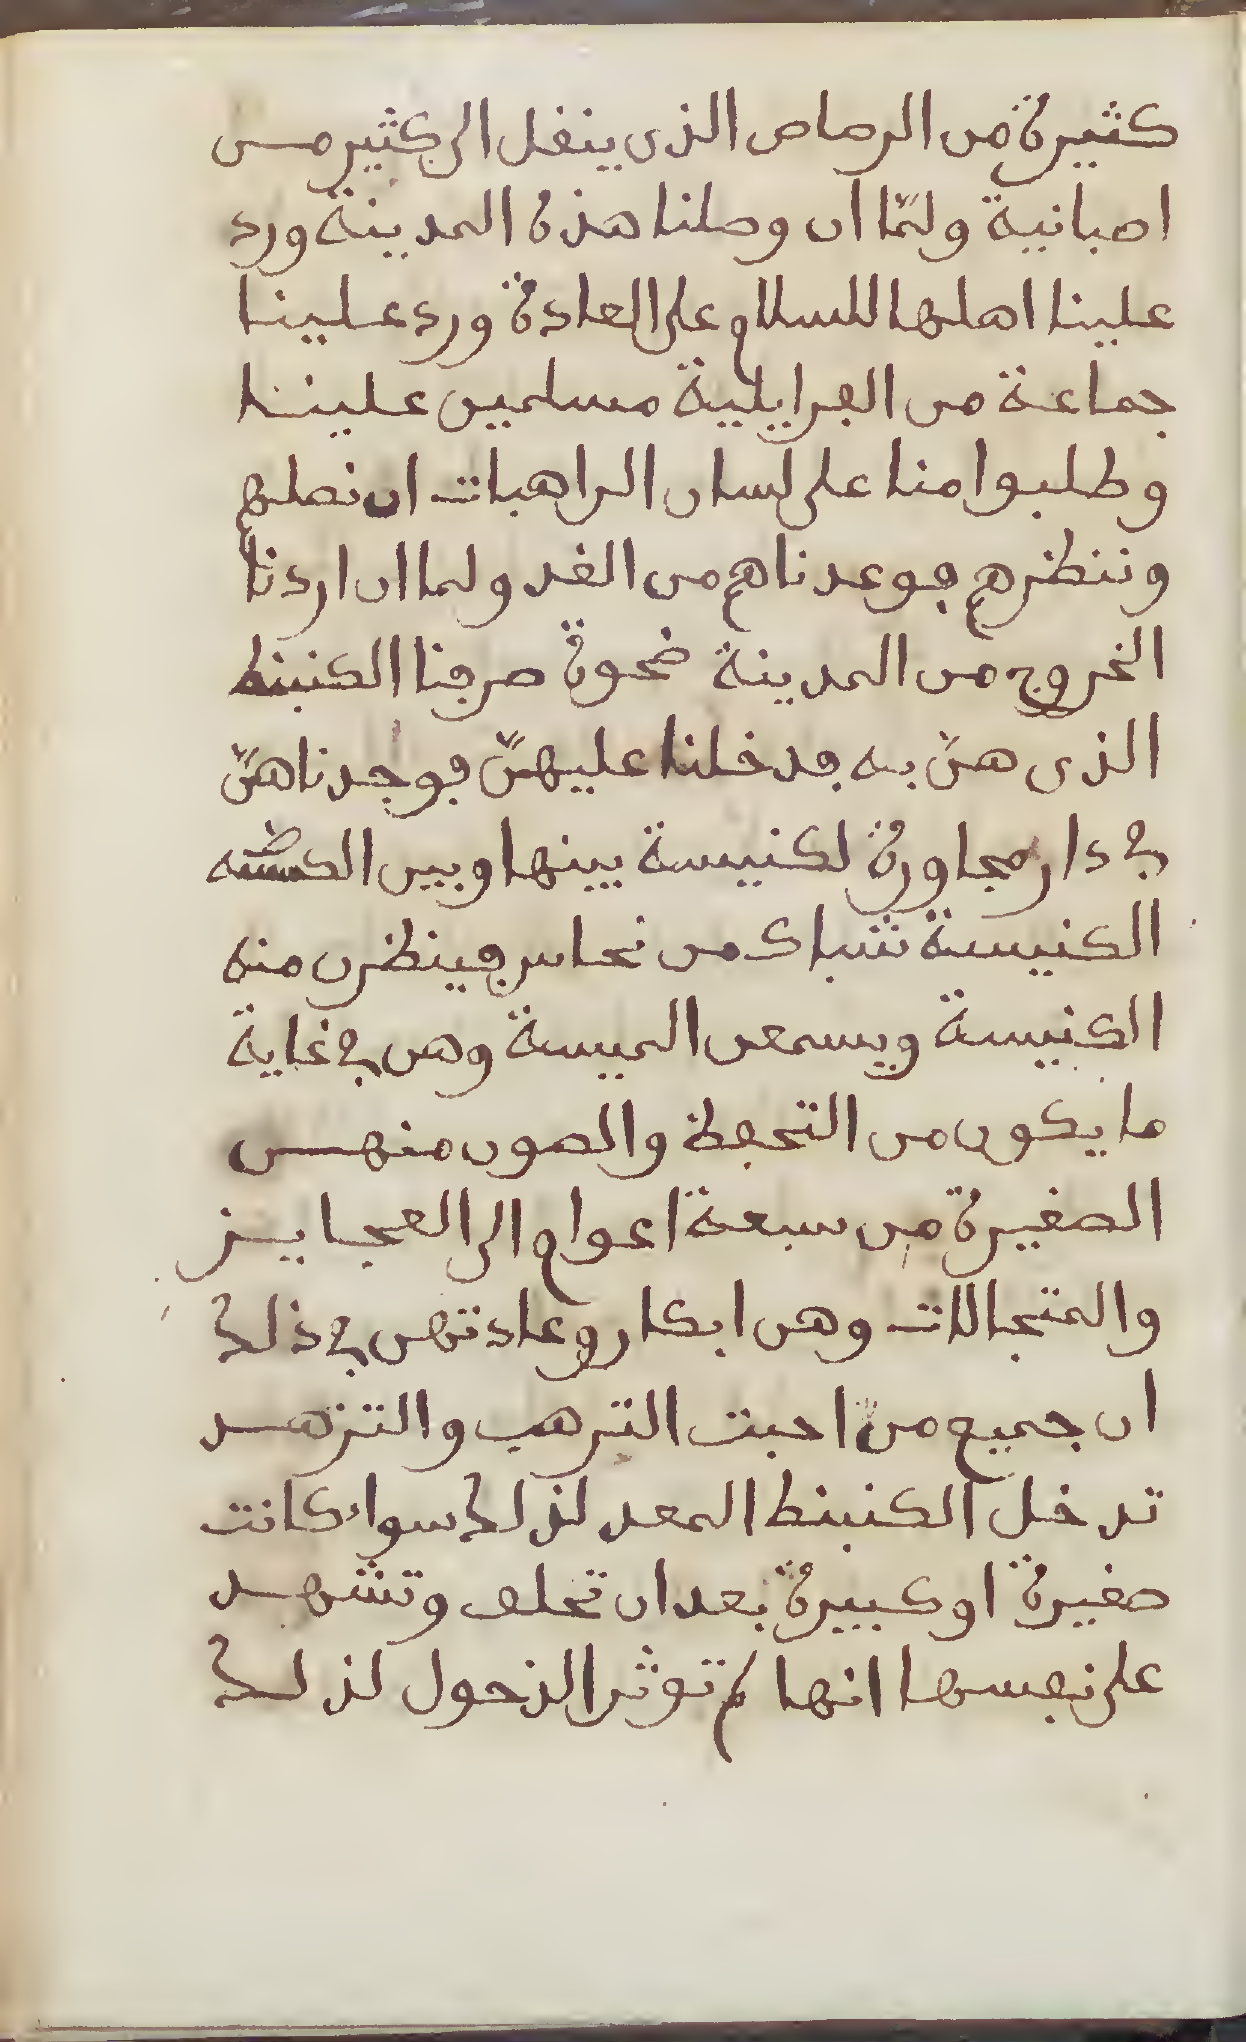 كثيرة من الرصاص الذى ينقل الى كثير مــن
اصبانية ولمّا ان وصلنا هذه المدينة ورد
علينا اهلها للسلام على العادة ورد علينا
جماعة من الفرايلية مسلمين علينا
وطلبوا منا على لسان الراهبات ان نصلهم
وننظرهم فوعدناهم من الغد ولما ان اردنا
الخروج من المدينة ضحوة صرفنا الكنبنط
الذى هنّ به فدخلنا عليهنّ فوجدناهنّ
فى دار مجاورة لكنيسة بينها وبين
الكنيسة شباك من نحاس فينظرن منه
الكنيسة ويسمعن الميسة وهن فى غاية
ما يكون من التحفظ والصون منهــن
الصغيرة من سبعة اعوام الى العجايــز
والمتجالات وهن ابكار وعادتهن فى ذلك
ان جميع من احبت الترهب والتزهــد
تدخل الكنبنط المعد لذلك سواء كانت
صغيرة او كبيرة بعد ان تحلف وتشهــد
على نفسها انها لم توثر الدخول لذلــك